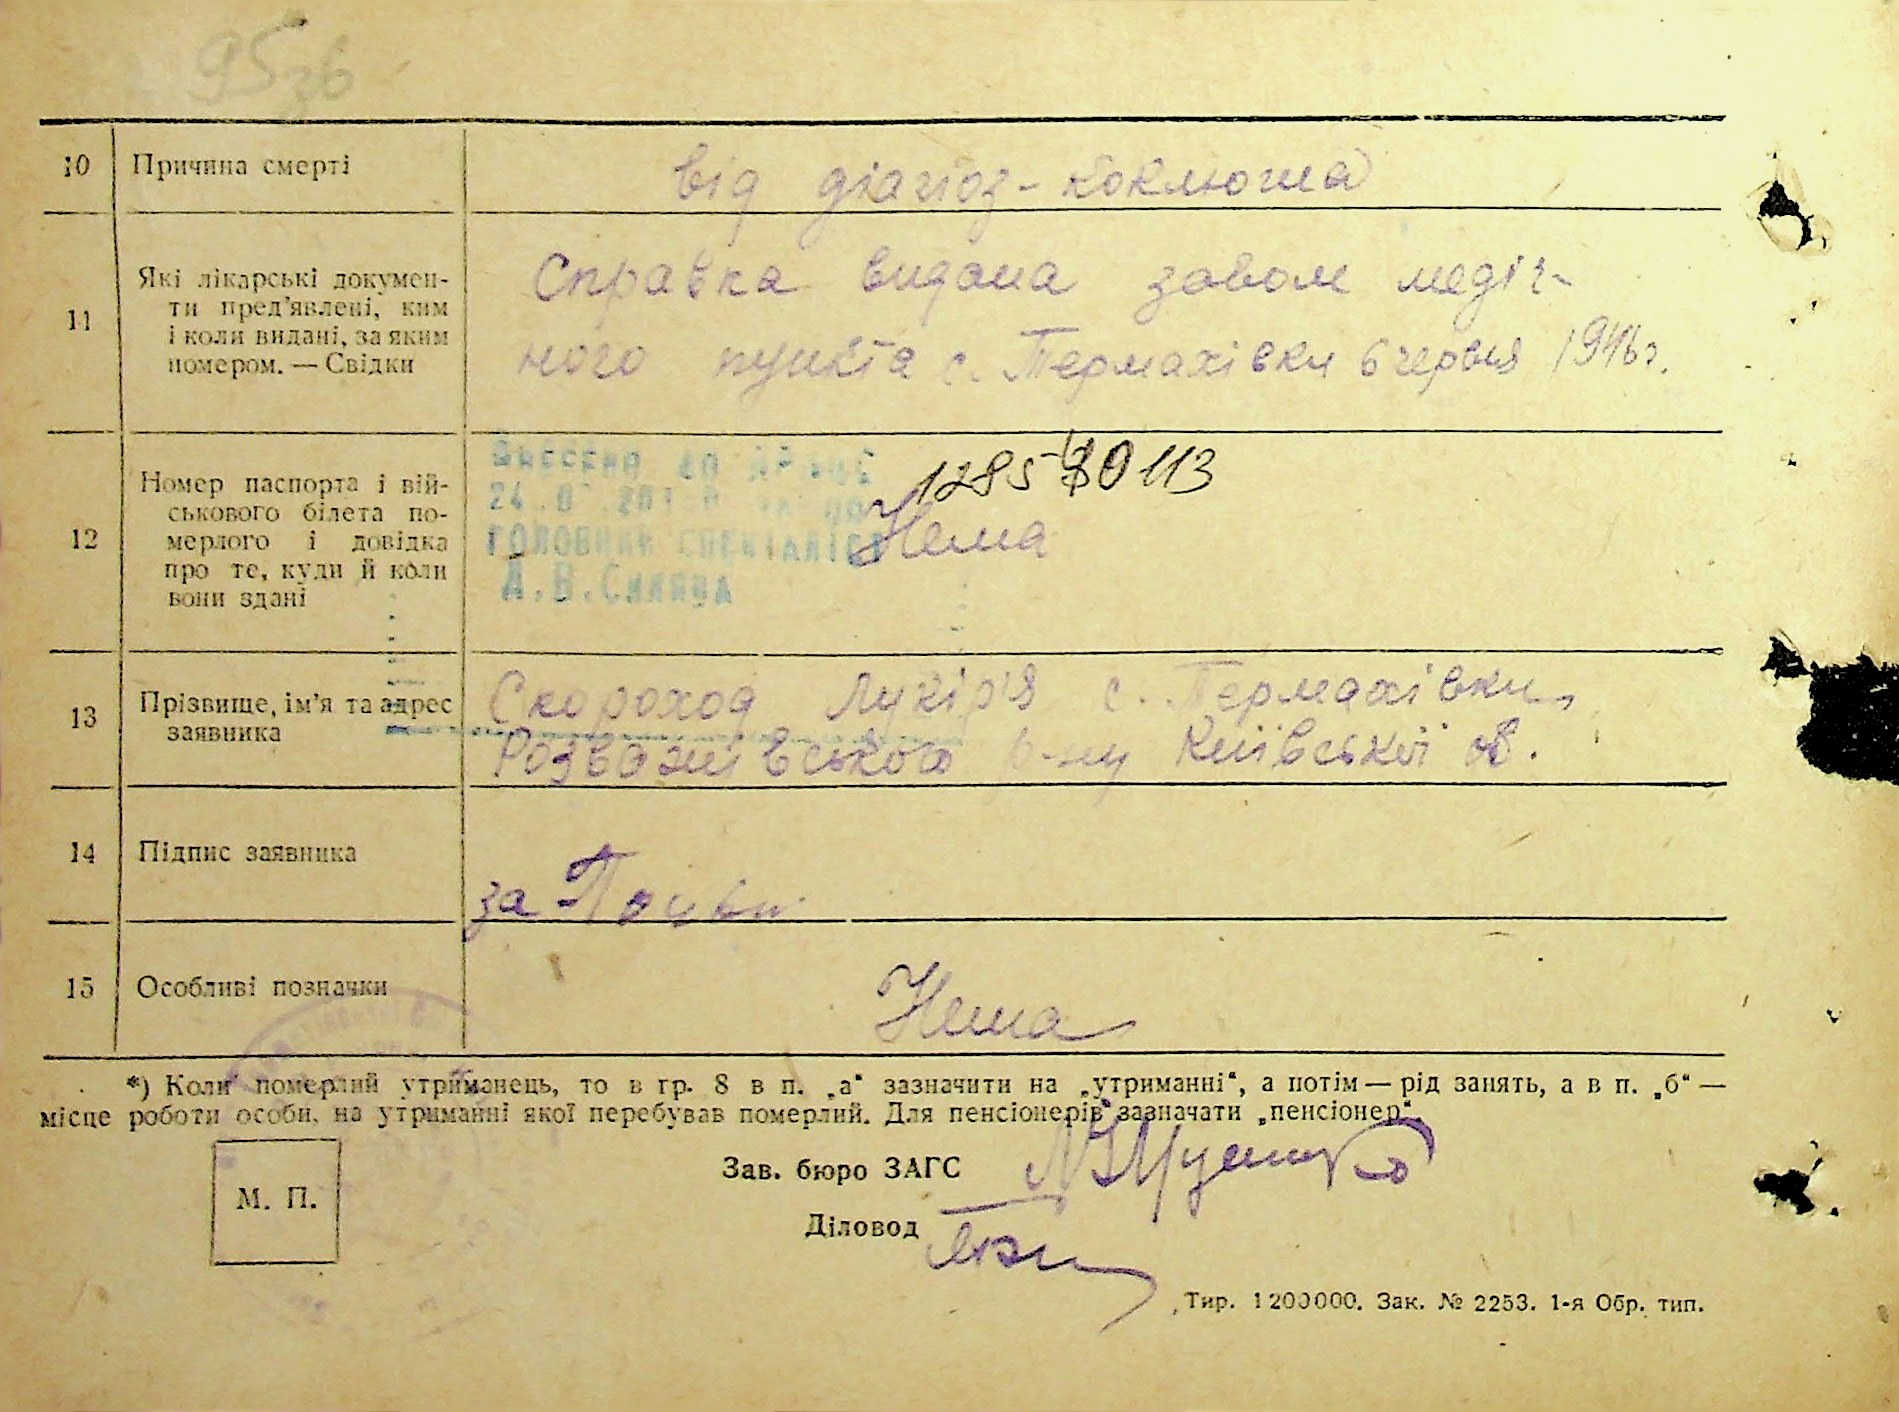 95зв
10 Причина смерті
від діагноз - коклюша
11 Які лікарські докумен-
ти пред'явлені, ким
і коли видані, за яким
номером. — Свідки
Справка видана завом медіч-
ного пункта с. Термахівки 6 червня 1946 г.
12 Номер паспорта і вій-
ськового білета по-
мерлого і довідка
про те, куди й коли
вони здані
Внесено до
24.0
ГОЛОВНИЙ СПЕЦІАЛІСТ
А.В.
Нема
13 Прізвище, ім'я та адрес
заявника
Скороход Лукір'я с. Термахівки,
Розважівського р-ну Київської об.
14 Підпис заявника
за
15 Особливі позначки
Нема
*) Коли померлий утриманець, то в гр. 8 в п. „а“ зазначити на „утриманні“, а потім — рід занять, а в п. „б“ —
місце роботи особи, на утриманні якої перебував померлий. Для пенсіонерів зазначати „пенсіонер“.
Зав. бюро ЗАГС
М. П.
Діловод
Тир. 1200000. Зак. № 2253. 1-я Обр. тип.